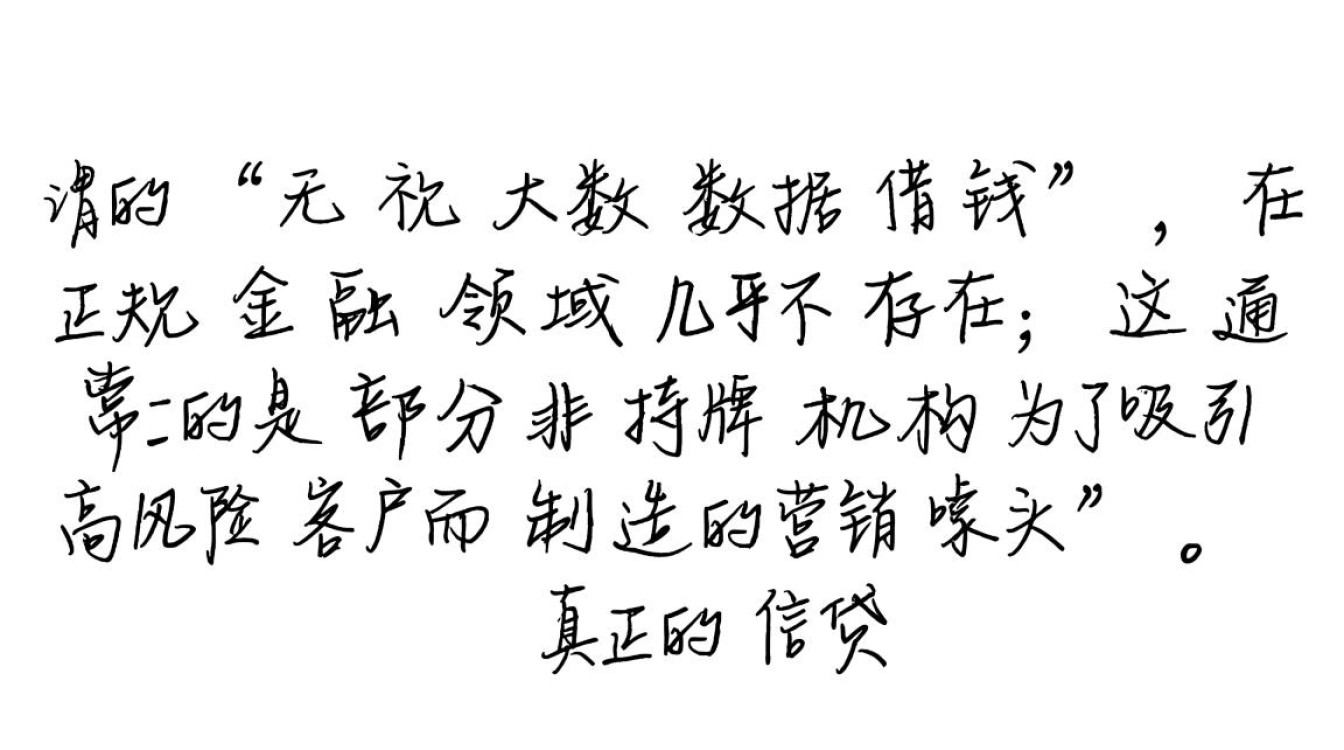 谓的“无视大数数据借钱”，在
正规金融领域几乎不存在；这通
常二的是部分非持牌机构为了吸引
高风险客户而制造的营销噱头”。
真正的信贷